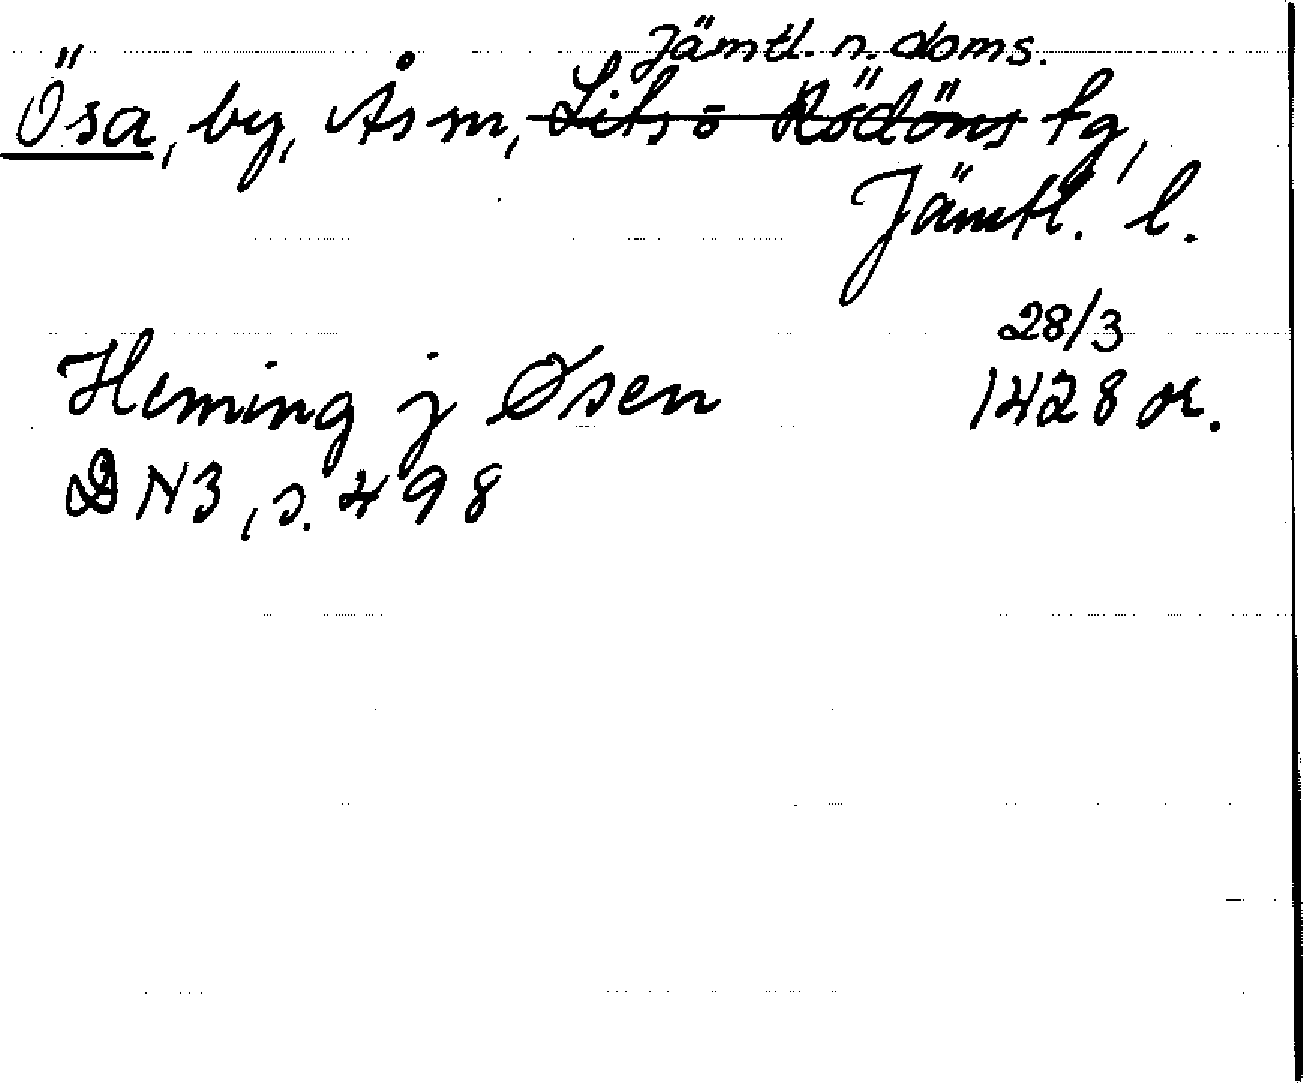 Jämtl. n. doms.
Ösa, by, Ås sn, Lits o Rödöns tg,
Jämtl. l.
28/3
Heming j Øsen 1428 or.
DN3, s. 498